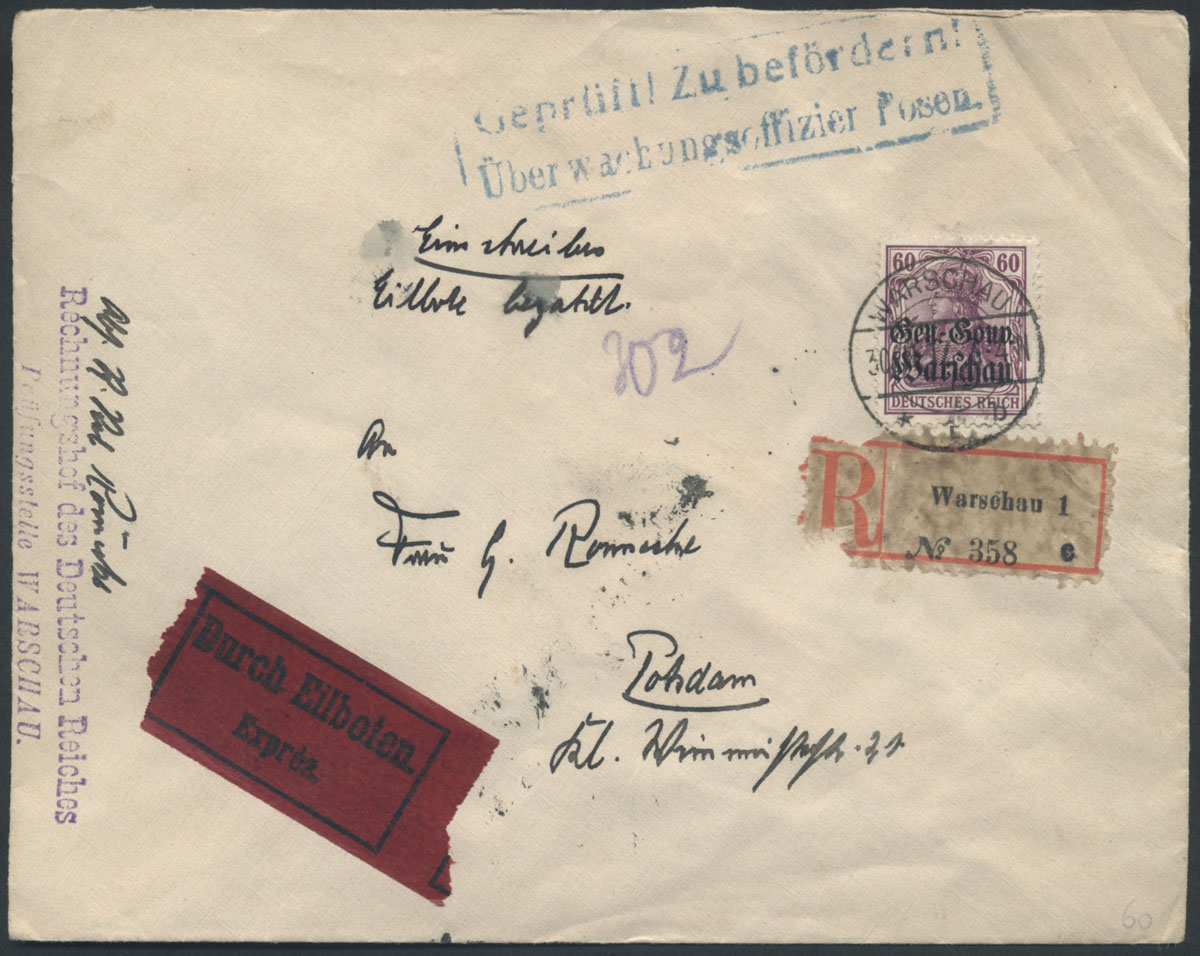 Geprüft! Zu befördern!
Überwachungsoffizier Posen.
Einschreiben
Eilbote bezahlt.
302
60 60
WARSCHAU
Gen.-Gouv.
Warschau
DEUTSCHES REICH
R
Warschau 1
№ 358 c
An
Frau G. Ronnecke
Potsdam
Kl. Weinmeisterstr. 21
Durch Eilboten.
Exprès.
Rechnungshof des Deutschen Reiches
Prüfungsstelle WARSCHAU.
60